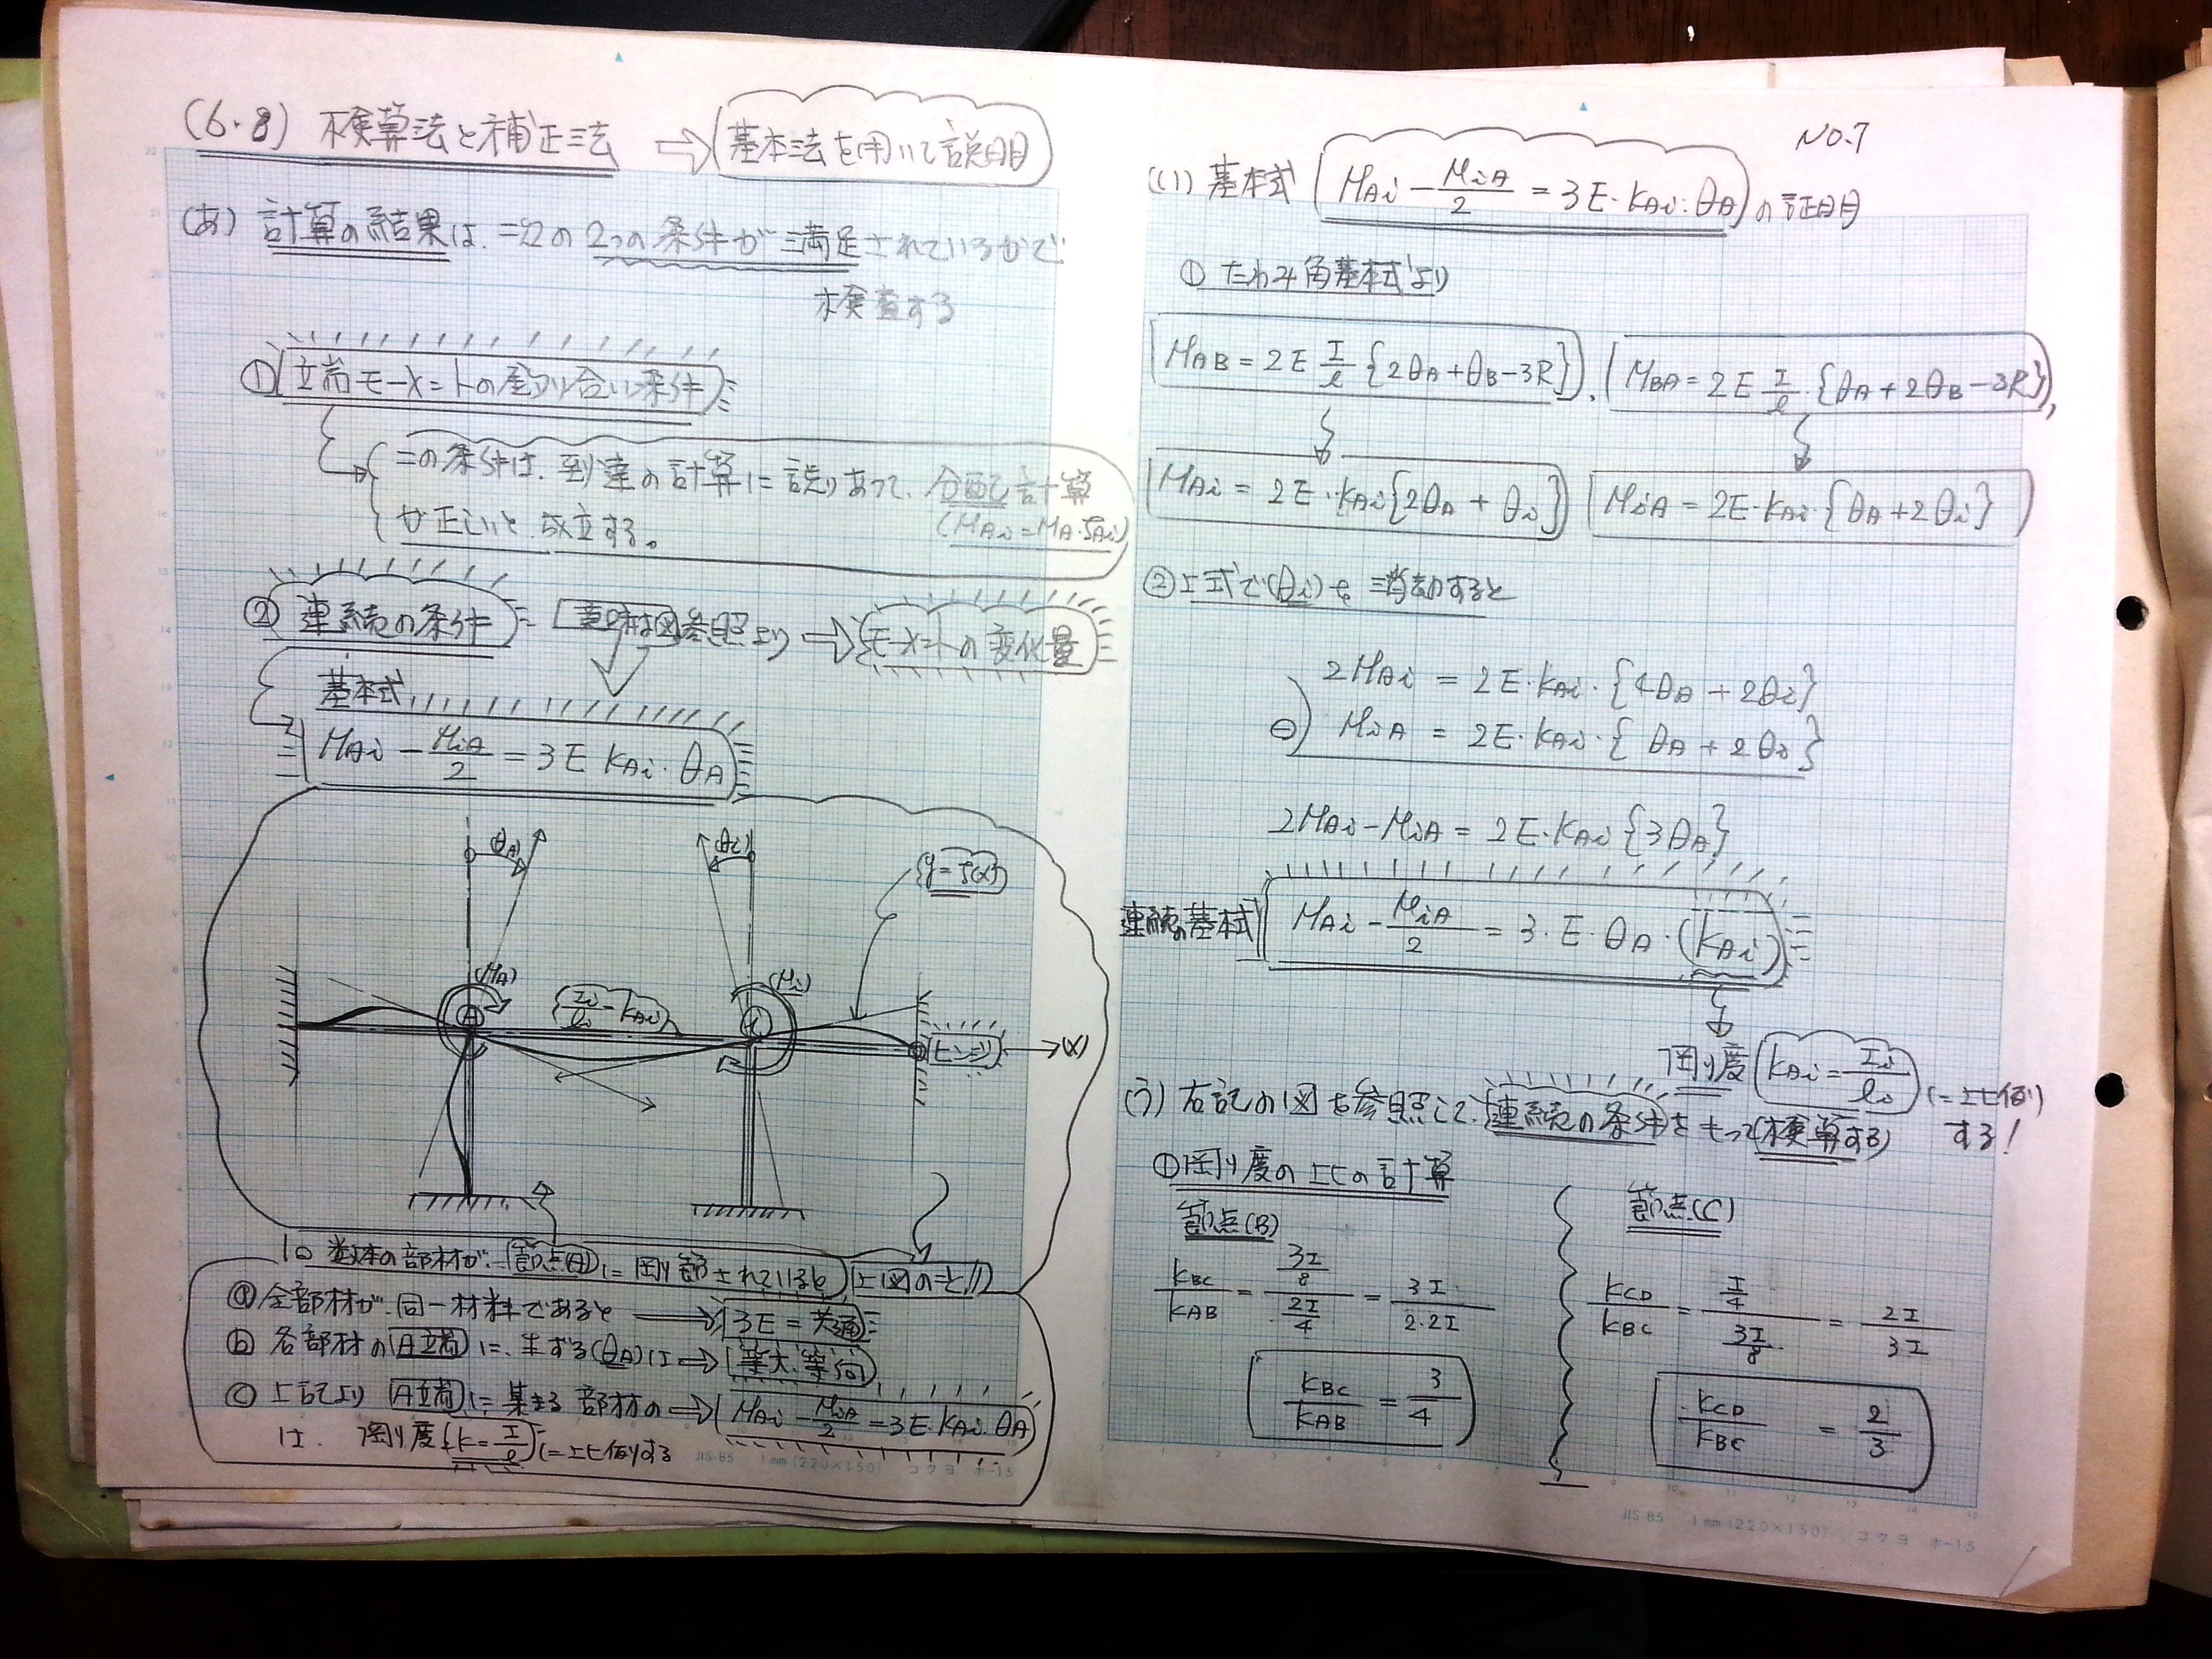 (6・8) 検算法と補正法 ⇒ 基本法を用いて説明
(あ) 計算の結果は、次の2つの条件が満足されているかで
検査する
① 立端モーメントの釣り合い条件
この条件は、到達の計算に誤りあって、分配計算
(MAi=MA・ζAi)
が正しいと成立する。
② 連続の条件 参照より ⇒ モーメントの変化量
基本式
MAi − MiA/2 = 3E kAi・θA
(θA) (θi) {y=f(x)}
(MA) (Mi)
A Ii/li=kAi i ヒンジ (x)
1o 数本の部材が、節点(A)に剛節されていると (上図の
ⓐ 全部材が、同一材料であると → 3E = 共通
ⓑ 各部材の(A立端)に、生ずる(θA)は ⇒ 等大、等向
ⓒ 上記より (A立端)に集まる部材の ⇒ MAi − MiA/2 = 3E・kAi・θA
は、剛度{k=I/l}に比例する
JIS-B5 1mm(220×150) コクヨ ホ-15
NO.7
(い) 基本式 (MAi − MiA/2 = 3E・kAi・θA) の証明
① たわみ角基本式より
MAB = 2E I/l {2θA+θB−3R}, MBA = 2E I/l・{θA+2θB−3R},
MAi = 2E・kAi{2θA + θi} MiA = 2E・kAi・{θA+2θi}
② 上式で(θi)を消却すると
2MAi = 2E・kAi・{4θA + 2θi}
⊖) MiA = 2E・kAi・{θA + 2θi}
2MAi−MiA = 2E・kAi{3θA}
連続の基本式 MAi − MiA/2 = 3・E・θA・(kAi)
剛度 (kAi = Ii/li) (=比例)
する!
(う) 右記の図を参照して、連続の条件をもって(検算する)
① 剛度の比の計算
節点(B) 節点(C)
kBC/kAB = (3I/8)/(2I/4) = 3I/2・2I kCD/kBC = (I/4)/(3I/8) = 2I/3I
kBC/kAB = 3/4 kCD/kBC = 2/3
JIS-B5 1mm(220×150) コクヨ ホ-15